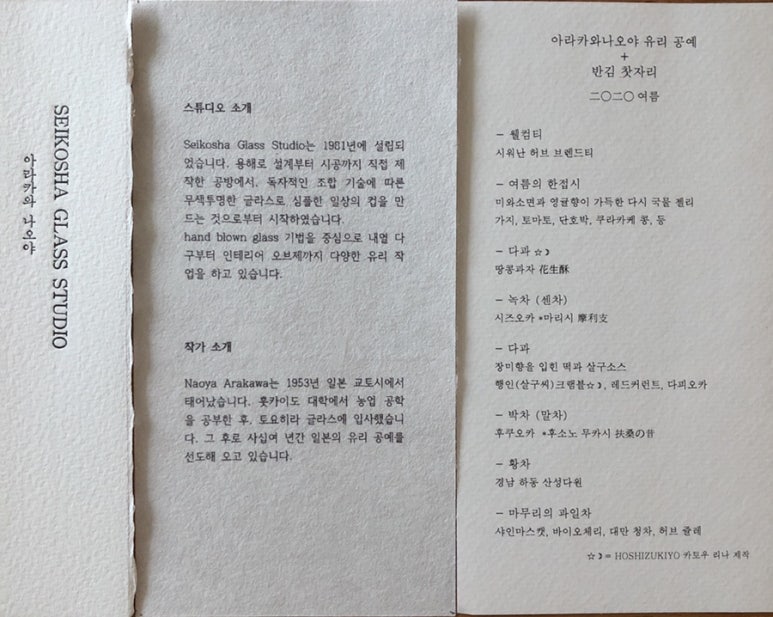 SEIKOSHA GLASS STUDIO
아라카와 나오야
스튜디오 소개
Seikosha Glass Studio는 1981년에 설립되
었습니다. 용해로 설계부터 시공까지 직접 제
작한 공방에서, 독자적인 조합 기술에 따른
무색투명한 글라스로, 심플한 일상의 컵을 만
드는 것으로부터 시작하였습니다.
hand blown glass 기법을 중심으로 내열 다
구부터 인테리어 오브제까지 다양한 유리 작
업을 하고 있습니다.
작가 소개
Naoya Arakawa는 1953년 일본 교토시에서
태어났습니다. 홋카이도 대학에서 농업 공학
을 공부한 후, 토요히라 글라스에 입사했습니
다. 그 후로 사십여 년간 일본의 유리 공예를
선도해 오고 있습니다.
아라카와나오야 유리 공예
+
반김 찻자리
二〇二〇 여름
– 웰컴티
시워난 허브 브렌드티
– 여름의 한접시
미와소면과 영귤향이 가득한 다시 국물 젤리
가지, 토마토, 단호박, 쿠라카케 콩, 등
– 다과 ☆☽
땅콩과자 花生酥
– 녹차 (센차)
시즈오카 *마리시 摩利支
– 다과
장미향을 입힌 떡과 살구소스
행인(살구씨)크램블☆☽, 레드커런트, 다피오카
– 박차 (말차)
후쿠오카 *후소노 무카시 扶桑の昔
– 황차
경남 하동 산성다원
– 마무리의 과일차
샤인마스캣, 바이오체리, 대만 청차, 허브 쥴레
☆☽= HOSHIZUKIYO 카토우 리나 제작